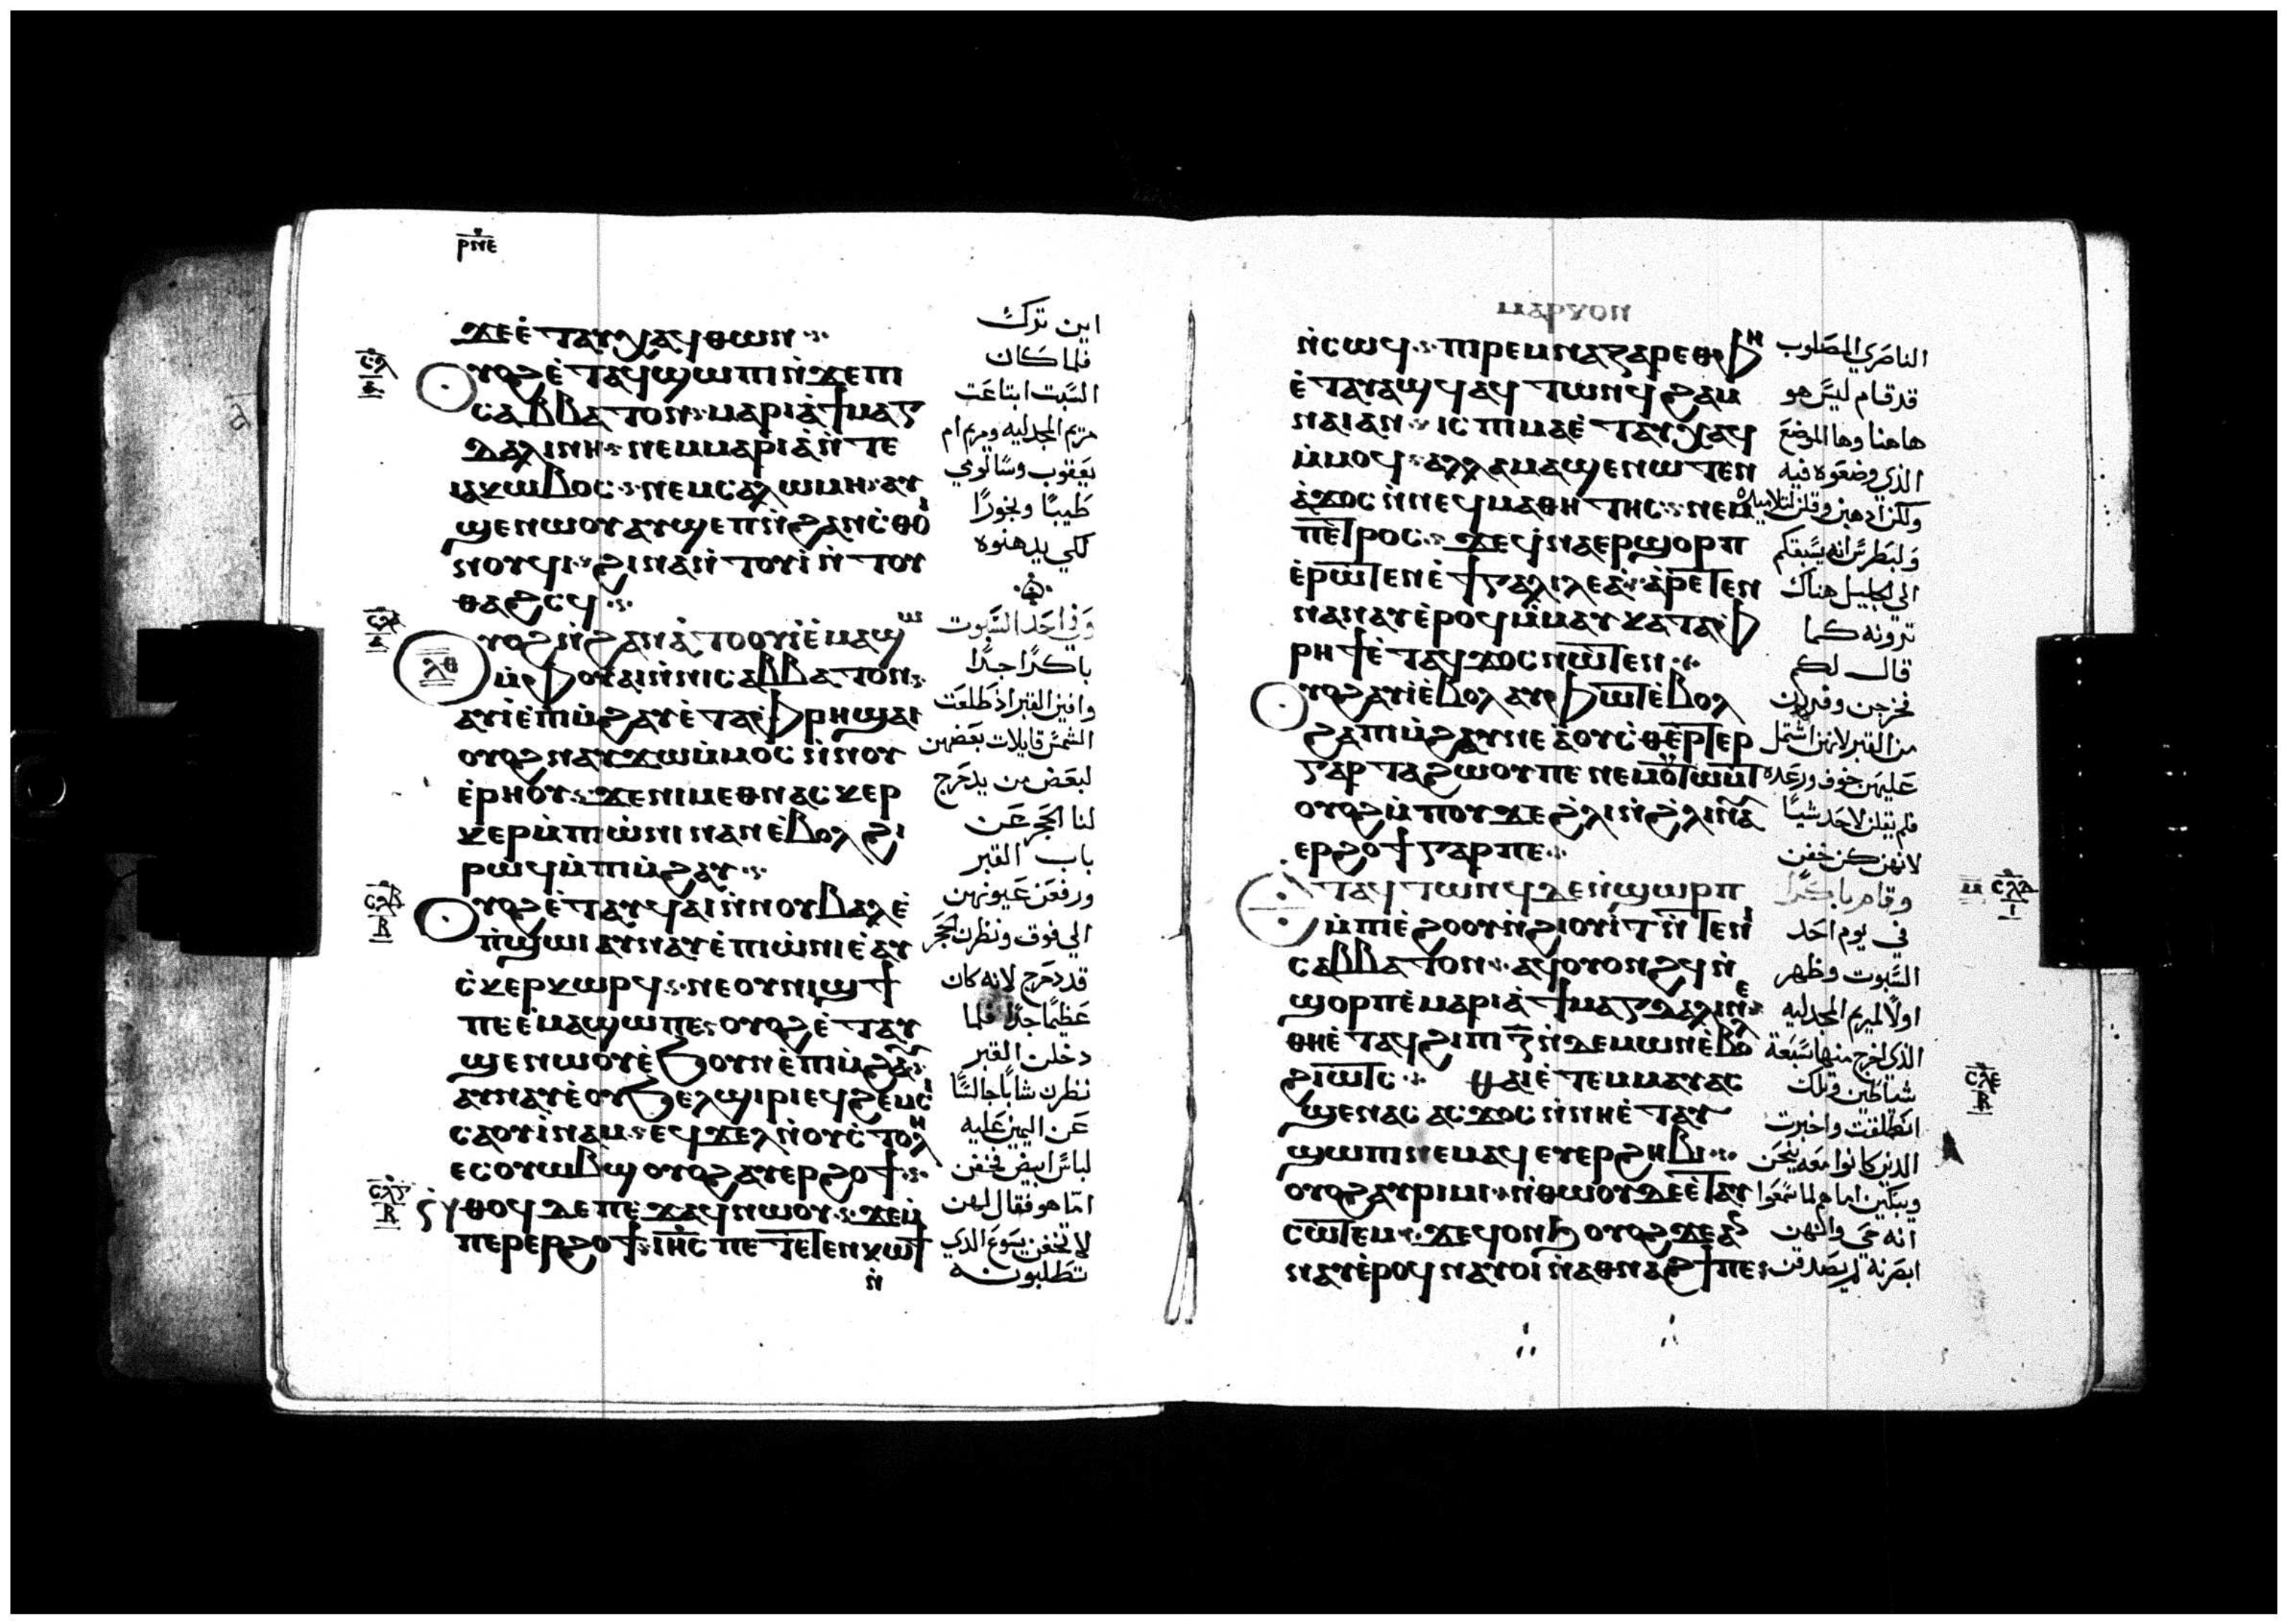 ⲣⲛⲉ
ϫⲉ ⲉ̇ⲧⲁⲩⲭⲁϥ ⲑⲱⲛ
ⲟⲩⲟϩ ⲉ̇ⲧⲁϥϣⲱⲡⲓ ⲛ̇ϫⲉ ⲡⲓ
ⲥⲁⲃⲃⲁⲧⲟⲛ ⲙⲁⲣⲓⲁ̇ ϯⲙⲁⲅ
ⲇⲁⲗⲓⲛⲏ ⲛⲉⲙ ⲙⲁⲣⲓⲁ̇ ⲛ̇ⲧⲉ
ⲓⲁⲕⲱⲃⲟⲥ ⲛⲉⲙ ⲥⲁⲗⲱⲙⲏ ⲁⲩ
ϣⲉⲛⲱⲟⲩ ⲁⲩϣⲉⲡ ⲛ̇ϩⲁⲛⲥ̇ⲑⲟⲓ
ⲛⲟⲩϥⲓ ϩⲓⲛⲁ ⲛ̇ⲧⲟⲩⲓ̇ ⲛ̇ⲧⲟⲩ
ⲑⲁϩⲥϥ
ⲟⲩⲟϩ ⲛ̇ϩⲁⲛⲁ̇ⲧⲟⲟⲩⲓ̇ ⲉ̇ⲙⲁϣⲱ
ⲙ̇ⲫⲟⲩⲁⲓ ⲛ̇ⲛⲓⲥⲁⲃⲃⲁⲧⲟⲛ
ⲁⲩⲓ̇ ⲉ̇ⲡⲓⲙ̇ϩⲁⲩ ⲉ̇ⲧⲁ ⲫⲣⲏ ϣⲁⲓ
ⲟⲩⲟϩ ⲛⲁⲩϫⲱ ⲙ̇ⲙⲟⲥ ⲛ̇ⲛⲟⲩ
ⲉ̇ⲣⲏⲟⲩ ϫⲉ ⲛⲓⲙ ⲉⲑⲛⲁⲥⲕⲉⲣ
ⲕⲉⲣ ⲙ̇ⲡⲓⲱ̇ⲛⲓ ⲛⲁⲛ ⲉ̇ⲃⲟⲗ ϩⲓ
ⲣⲱϥ ⲙ̇ⲡⲓⲙ̇ϩⲁⲩ
ⲟⲩⲟϩ ⲉ̇ⲧⲁⲩϥⲁⲓ ⲛ̇ⲛⲟⲩⲃⲁⲗ ⲉ̇
ⲡ̇ϣⲱⲓ ⲁⲩⲛⲁⲩ ⲉ̇ⲡⲓⲱ̇ⲛⲓ ⲉ̇ⲁⲩ
ⲥ̇ⲕⲉⲣⲕⲱⲣϥ ⲛⲉ ⲟⲩⲛⲓϣϯ
ⲡⲉ ⲉ̇ⲙⲁϣⲱ ⲡⲉ ⲟⲩⲟϩ ⲉ̇ⲧⲁⲩ
ϣⲉⲛⲱⲟⲩ ⲉ̇ϧⲟⲩⲛ ⲉ̇ⲡⲓⲙ̇ϩⲁⲩ
ⲁⲩⲛⲁⲩ ⲉ̇ⲟⲩϧⲉⲗϣⲓⲣⲓ ⲉϥϩⲉⲙⲥⲓ
ⲥⲁⲟⲩⲓ̇ⲛⲁⲙ ⲉϥϫⲉⲗ ⲛ̇ⲟⲩⲥ̇ⲧⲟⲗⲏ
ⲉⲥⲟⲩⲱⲃϣ ⲟⲩⲟϩ ⲁⲩⲉⲣϩⲟϯ
ⲛ̇ⲑⲟϥ ⲇⲉ ⲡⲉϫⲁϥ ⲛⲱⲟⲩ ϫⲉ ⲙ̇
ⲡⲉⲣⲉⲣϩⲟϯ ⲓⲏⲥ ⲡⲉⲧⲉⲧⲉⲛⲕⲱϯ
ⲛ̇
ⲥ̅ⲗ̅
ⲥ̅ⲗ̅ⲁ̅
ⲗ̅ⲑ̅
ⲥ̅ⲗ̅ⲃ̅
ⲃ̅
ⲥ̅ⲗ̅ⲅ̅
ⲃ̅
اين ترك
فلما كان
السبت ابتاعت
مريم المجدليه ومريم ام
يعقوب وسالومي
طيبًا وبخورًا
لكي يدهنوه
وفي احد السبوت
باكرًا جدًا
وافين القبر اذ طلعت
الشمس قايلات بعضهن
لبعض من يدحرج
لنا الحجر عن
باب القبر
ورفعن عيونهن
الي فوق ونظرن الحجر
قد دحرج لانه كان
عظيمًا جدًا فلما
دخلن القبر
نظرن شابًا جالسًا
عن اليمين عليه
لباس ابيض فخفن
اما هو فقال لهن
لا تخفن يسوع الذي
تطلبونه
ⲙⲁⲣⲕⲟⲛ
ⲛ̇ⲥⲱϥ ⲡⲓⲣⲉⲙⲛⲁⲍⲁⲣⲉⲑ ⲫⲏ
ⲉ̇ⲧⲁⲩⲁϣϥ ⲁϥⲧⲱⲛϥ ϩⲁⲙ
ⲛⲁⲓ ⲁⲛ ⲓⲥ ⲡⲓⲙⲁ ⲉ̇ⲧⲁⲩⲭⲁϥ
ⲙ̇ⲙⲟϥ ⲁⲗⲗⲁ ⲙⲁϣⲉⲛⲱⲧⲉⲛ
ⲁ̇ϫⲟⲥ ⲛ̇ⲛⲉϥⲙⲁⲑⲏⲧⲏⲥ ⲛⲉⲙ
ⲡⲉⲧⲣⲟⲥ ϫⲉ ϥ̇ⲛⲁⲉⲣϣⲟⲣⲡ
ⲉ̇ⲣⲱⲧⲉⲛ ⲉ̇ϯⲅⲁⲗⲓⲗⲉⲁ̇ ⲁ̇ⲣⲉⲧⲉⲛ
ⲛⲁⲛⲁⲩ ⲉ̇ⲣⲟϥ ⲙ̇ⲙⲁⲩ ⲕⲁⲧⲁ ⲫ
ⲣⲏϯ ⲉ̇ⲧⲁϥϫⲟⲥ ⲛⲱⲧⲉⲛ
ⲟⲩⲟϩ ⲁⲩⲓ̇ ⲉ̇ⲃⲟⲗ ⲁⲩⲫⲱⲧ ⲉ̇ⲃⲟⲗ
ϩⲁ ⲡⲓⲙ̇ϩⲁⲩ ⲛⲉ ⲁ̇ ⲟⲩⲥ̇ⲑⲉⲣⲧⲉⲣ
ⲅⲁⲣ ⲧⲁϩⲱⲟⲩ ⲡⲉ ⲛⲉⲙ ⲟⲩⲧⲱⲙⲧ
ⲟⲩⲟϩ ⲙ̇ⲡⲟⲩϫⲉ ϩ̇ⲗⲓ ⲛ̇ϩ̇ⲗⲓ ⲛⲁⲩ
ⲉⲣϩⲟϯ ⲅⲁⲣ ⲡⲉ
ⲉ̇ⲧⲁϥⲧⲱⲛϥ ⲇⲉ ⲛ̇ϣⲱⲣⲡ
ⲙ̇ⲡⲓⲉ̇ϩⲟⲟⲩ ⲛ̇ϩⲟⲩⲓⲧ ⲛ̇ⲧⲉ ⲛⲓ
ⲥⲁⲃⲃⲁⲧⲟⲛ ⲁϥⲟⲩⲟⲛϩϥ ⲛ̇
ϣⲟⲣⲡ ⲉ̇ⲙⲁⲣⲓⲁ̇ ϯⲙⲁⲅⲇⲁⲗⲓⲛⲏ
ⲑⲏ ⲉ̇ⲧⲁϥϩⲓ ⲡⲓⲍ̅ ⲛ̇ⲇⲉⲙⲱⲛ ⲉ̇ⲃⲟⲗ
ϩⲓⲱⲧⲥ ⲑⲁⲓ ⲉ̇ⲧⲉⲙⲙⲁⲩ ⲁⲥ
ϣⲉⲛⲁⲥ ⲁⲥϫⲟⲥ ⲛ̇ⲛⲏ ⲉ̇ⲧⲁⲩ
ϣⲱⲡⲓ ⲛⲉⲙⲁϥ ⲉⲩⲉⲣϩⲏⲃⲓ
ⲟⲩⲟϩ ⲁⲩⲣⲓⲙⲓ ⲛ̇ⲑⲱⲟⲩ ⲇⲉ ⲉ̇ⲧⲁⲩ
ⲥⲱⲧⲉⲙ ϫⲉ ϥⲟⲛϧ ⲟⲩⲟϩ ϫⲉ ⲁⲥ
ⲛⲁⲩ ⲉ̇ⲣⲟϥ ⲛⲁⲩⲟⲓ ⲛ̇ⲁⲑⲛⲁϩϯ ⲡⲉ
الناصري المصلوب
قد قام ليس هو
هاهنا وها الموضع
الذي وضعوه فيه
ولكن اذهبن وقلن لتلاميذه
ولبطرس انه يسبقكم
الي الجليل هناك
ترونه كما
قال لكم
فخرجن وفررن
من القبر لانهن اشتمل
عليهن خوف ورعده
فلم يقلن لاحد شيًا
لانهن كن خفن
وقام باكرًا
في يوم احد
السبوت وظهر
اولًا لمريم المجدليه
الذي اخرج منها سبعة
شياطين وتلك
انطلقت واخبرت
الذين كانوا معه ينحن
ويبكين اما هم لما سمعوا
انه حي وانهن
ابصرنه لم يصدقن
ⲥ̅ⲗ̅ⲇ̅
ⲥ̅ⲗ̅ⲉ̅
ⲃ̅